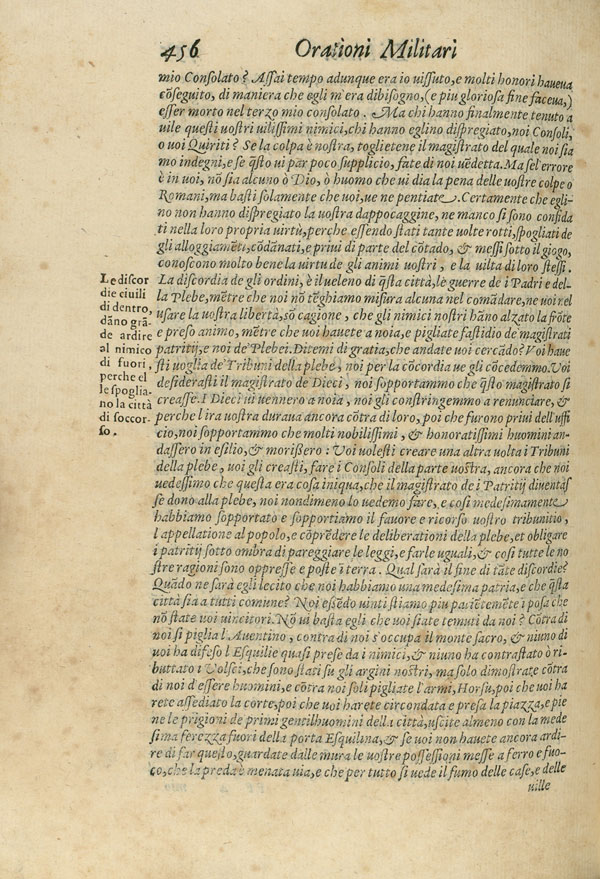 456 Orationi Militari
mio Consolato? Assai tempo adunque era io uissuto, e molti honori haueua
cōseguito, di maniera che egli m'era dibisogno, (e piu gloriosa fine faceua,)
esser morto nel terzo mio consolato. Ma chi hanno finalmente tenuto a
uile questi uostri uilissimi nimici, chi hanno eglino dispregiato, noi Consoli,
o uoi Quiriti? Se la colpa è nostra, toglietene il magistrato del quale noi sia
mo indegni, e se q̄sto ui par poco supplicio, fate di noi uēdetta. Ma se l'errore
è in uoi, nō sia alcuno ò Dio, ò huomo che ui dia la pena delle uostre colpe o
Romani, ma basti solamente che uoi, ue ne pentiate. Certamente che egli-
no non hanno dispregiato la uostra dappocaggine, ne manco si sono confida
ti nella loro propria uirtù, perche essendo stati tante uolte rotti, spogliati de
gli alloggiamēti, cōdānati, e priui di parte del cōtado, & messi sotto il giogo,
conoscono molto bene la uirtu de gli animi uostri, e la uilta di loro stessi.
La discordia de gli ordini, è il ueleno di q̄sta città, le guerre de i Padri e del-
la Plebe, mētre che noi nō tēghiamo misura alcuna nel comādare, ne uoi nel
usare la uostra libertà, sō cagione, che gli nimici nostri hāno alzato la frōte
e preso animo, mētre che uoi hauete a noia, e pigliate fastidio de magistrati
patritij, e noi de' Plebei. Ditemi di gratia, che andate uoi cercādo? Voi haue
sti uoglia de' Tribuni della plebe, noi per la cōcordia ue gli cōcedemmo. Voi
desiderasti il magistrato de Dieci, noi sopportammo che q̄sto magistrato si
creasse. I Dieci ui uennero a noia, noi gli constringemmo a renunciare, &
perche l'ira uostra duraua ancora cōtra di loro, poi che furono priui dell'uffi
cio, noi sopportammo che molti nobilissimi, & honoratissimi huomini an-
dassero in esilio, & morissero: Voi uolesti creare una altra uolta i Tribuni
della plebe, uoi gli creasti, fare i Consoli della parte uostra, ancora che noi
uedessimo che questa era cosa iniqua, che il magistrato de i Patritij diuentas
se dono alla plebe, noi nondimeno lo uedemo fare, e cosi medesimamente
habbiamo sopportato e sopportiamo il fauore e ricorso uostro tribunitio,
l'appellatione al popolo, e cōprēdere le deliberationi della plebe, et obligare
i patritij sotto ombra di pareggiare le leggi, e farle uguali, & cosi tutte le no
stre ragioni sono oppresse e poste ī terra. Qual sarà il fine di tāte discordie?
Quādo ne sarà egli lecito che noi habbiamo una medesima patria, e che q̄sta
città sia a tutti comune? Noi essēdo uinti stiamo piu patiētemēte ī posa che
nō state uoi uincitori. Nō ui basta egli che uoi siate temuti da noi? Cōtra di
noi si piglia l'Auentino, contra di noi s'occupa il monte sacro, & niuno di
uoi ha difeso l'Esquilie quasi prese da i nimici, & niuno ha contrastato ò ri-
buttato i Volsci, che sono stati su gli argini nostri, ma solo dimostrate cōtra
di noi d'essere huomini, e cōtra noi soli pigliate l'armi, Horsu, poi che uoi ha
rete assediato la corte, poi che uoi harete circondata e presa la piazza, e pie
ne le prigioni de primi gentilhuomini della città, uscite almeno con la mede
sima ferezza fuori della porta Esquilina, & se uoi non hauete ancora ardi-
re di far questo, guardate dalle mura le uostre possessioni messe a ferro e fuo-
co, che la preda è menata uia, e che per tutto si uede il fumo delle case, e delle
uille
Le discor
die ciuili
di dentro,
dāno grā-
de ardire
al nimico
di fuori,
perche el
le spoglia-
no la città
di soccor-
so.